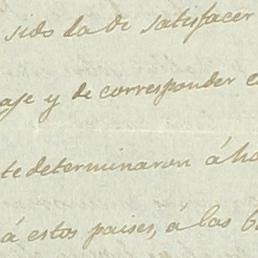 sido la de satisfacer
aje y de corresponder c
te determinaron á ho
á estos paises, á las 6